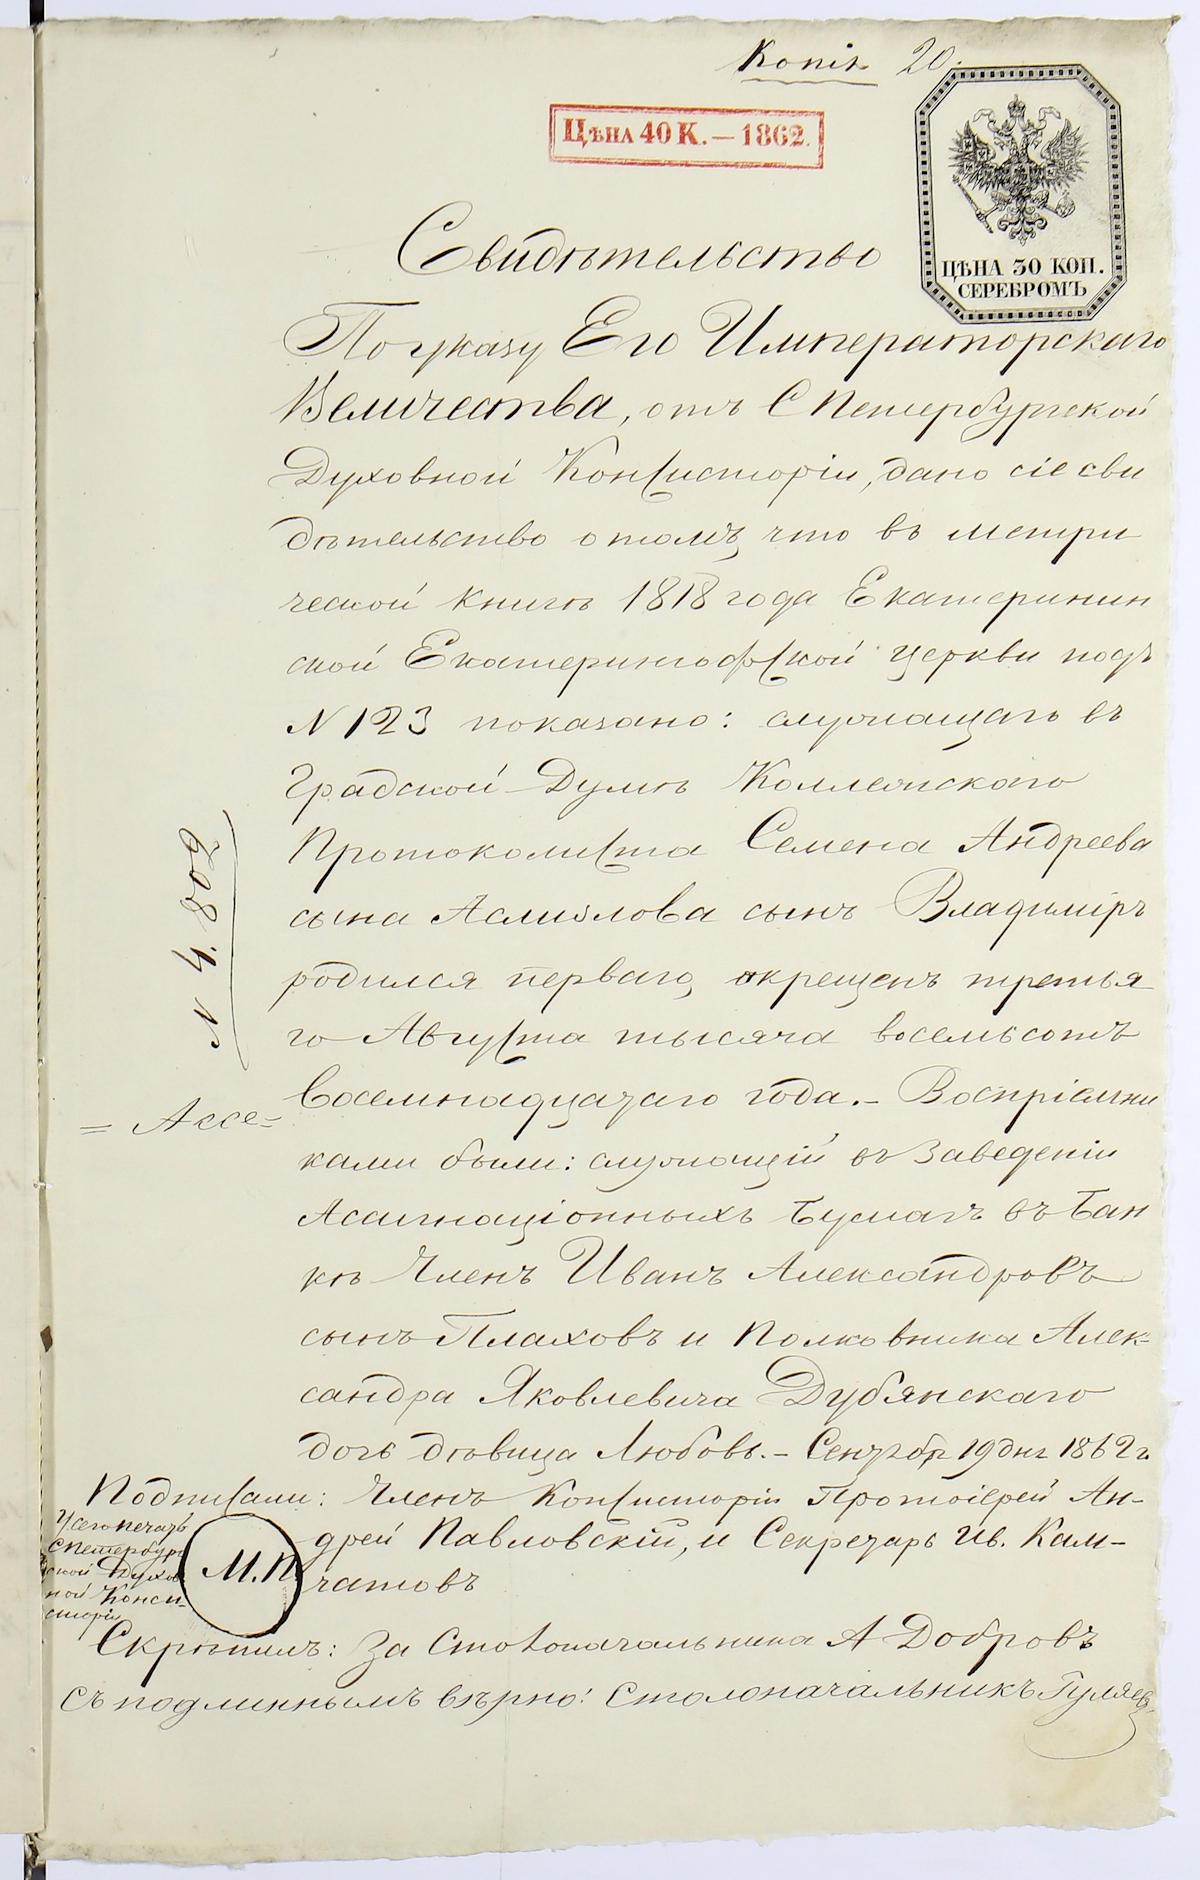 Копія 20.
Цѣна 40 К. — 1862.
ЦѢНА 30 КОП.
СЕРЕБРОМЪ
Свидѣтельство
По указу Его Императорскаго
Величества, отъ С Петербургской
Духовной Консисторіи, дано сіе сви
дѣтельство о томъ, что въ метри
ческой книгѣ 1818 года Екатеринин
ской Екатерингофской церкви подъ
N 123 показано: служащаго въ
Градской Думѣ Коллежскаго
Протоколиста Семена Андреева
сына сынъ Владиміръ
родился перваго, окрещенъ третья
го Августа тысяча восемьсотъ
Восемнадцатаго года.- Воспріемни
= Ассе=
N 4,809
ками были: служащій въ Заведеніи
Асигнаціонныхъ Бумагъ въ Бан
кѣ Членъ Иванъ Александровъ
сынъ Плаховъ и Полковника Алек-
сандра Яковлевича Дубянскаго
дочь дѣвица Любовь.- Сентябр 19 дня 1862 г.
Подписали: Членъ Консисторіи Протоіерей Ан-
дрей Павловскій, и Секретарь Ив. Кам-
чатовъ
У сего печать
СПетербург
ской Духов
ной Конси-
сторіи
М.П
Скрѣпилъ: За Столоначальника А Добровъ
Съ подлиннымъ вѣрно: Столоначальникъ Гуляев